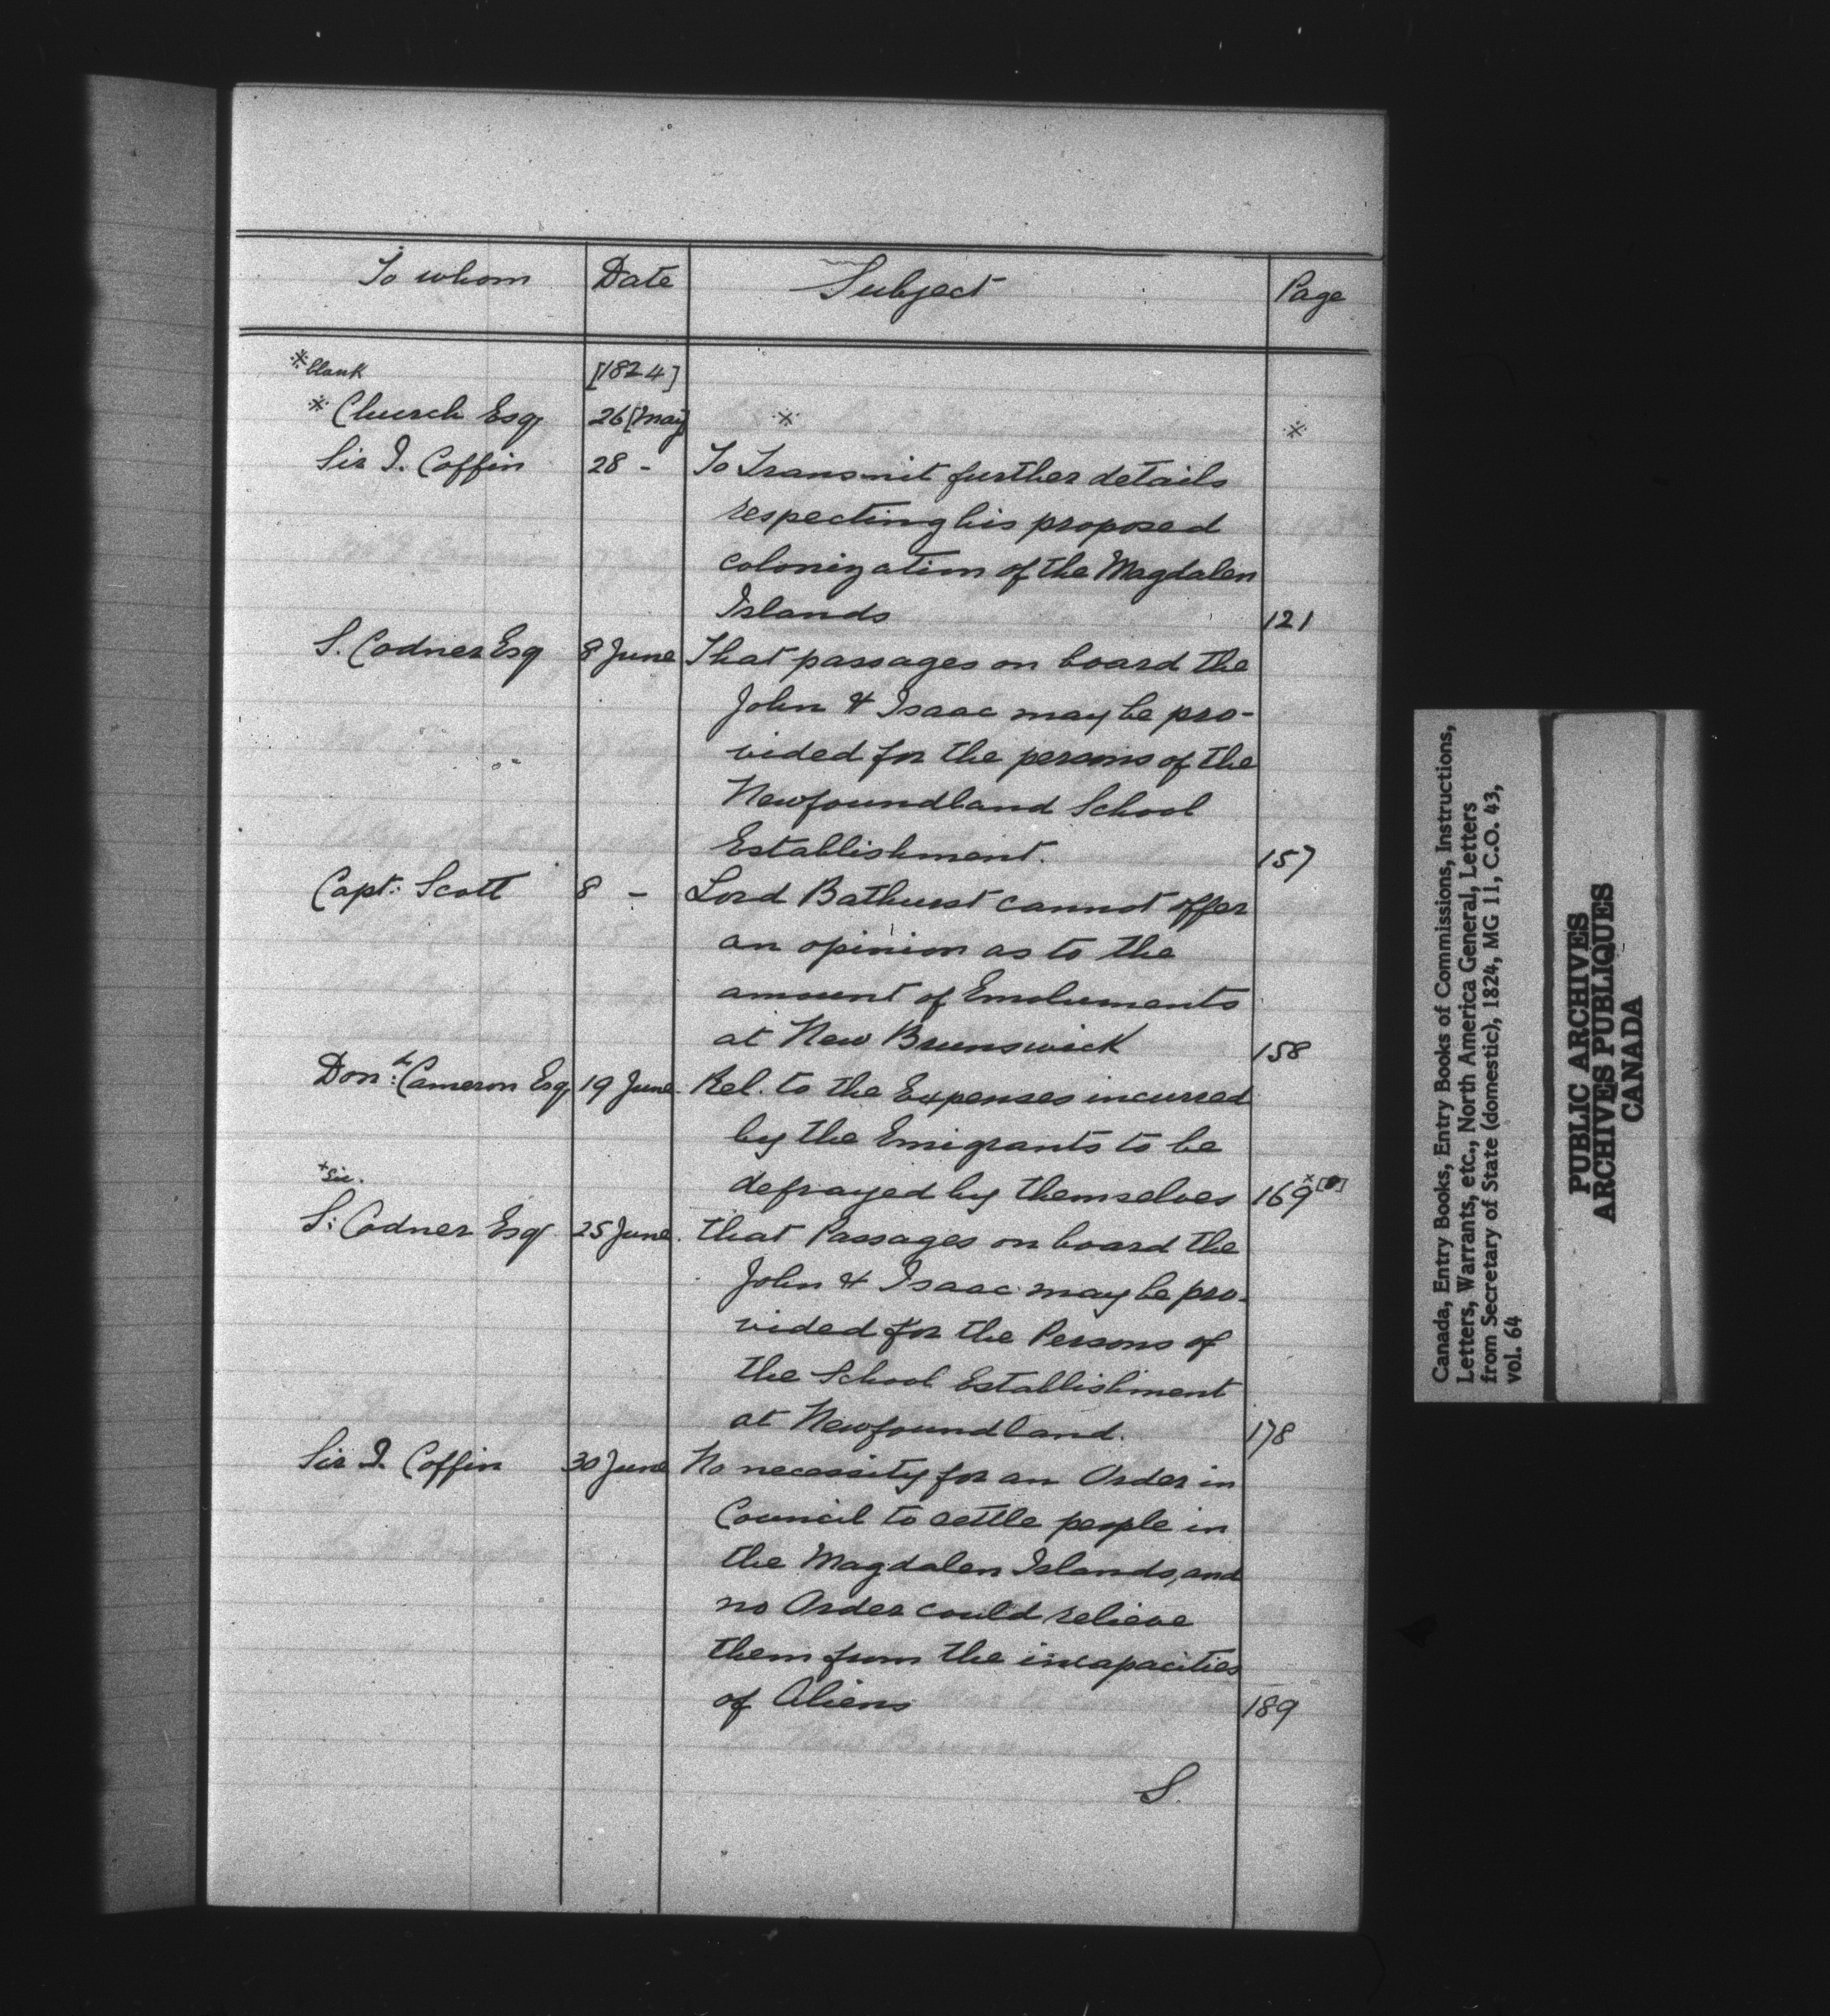 To whom Date Subject Page
※ blank [1824]
※ Church Esq 26 [May] ※ ※
Sir I. Coffin 28 - To Transmit further details
respecting his proposed
colonization of the Magdalen
Islands 121
S. Codner Esq 8 June That passages on board the
John & Isaac may be pro-
vided for the persons of the
Newfoundland School
Establishment. 157
Capt: Scott 8 - Lord Bathurst cannot offer
an opinion as to the
amount of Emoluments
at New Brunswick 158
Don:d Cameron Esq 19 June. Rel. to the Expenses incurred
by the Emigrants to be
defrayed by themselves 169
x Sic.
S: Codner Esq 25 June. that Passages on board the
John & Isaac may be pro-
vided for the Persons of
the School Establishment
at Newfoundland. 178
Sir I. Coffin 30 June No necessity for an Order in
Council to settle people in
the Magdalen Islands, and
no Order could relieve
them from the incapacities
of Aliens 189
S.
Canada, Entry Books, Entry Books of Commissions, Instructions,
Letters, Warrants, etc., North America General, Letters
from Secretary of State (domestic), 1824, MG 11, C.O. 43,
vol. 64
PUBLIC ARCHIVES
ARCHIVES PUBLIQUES
CANADA